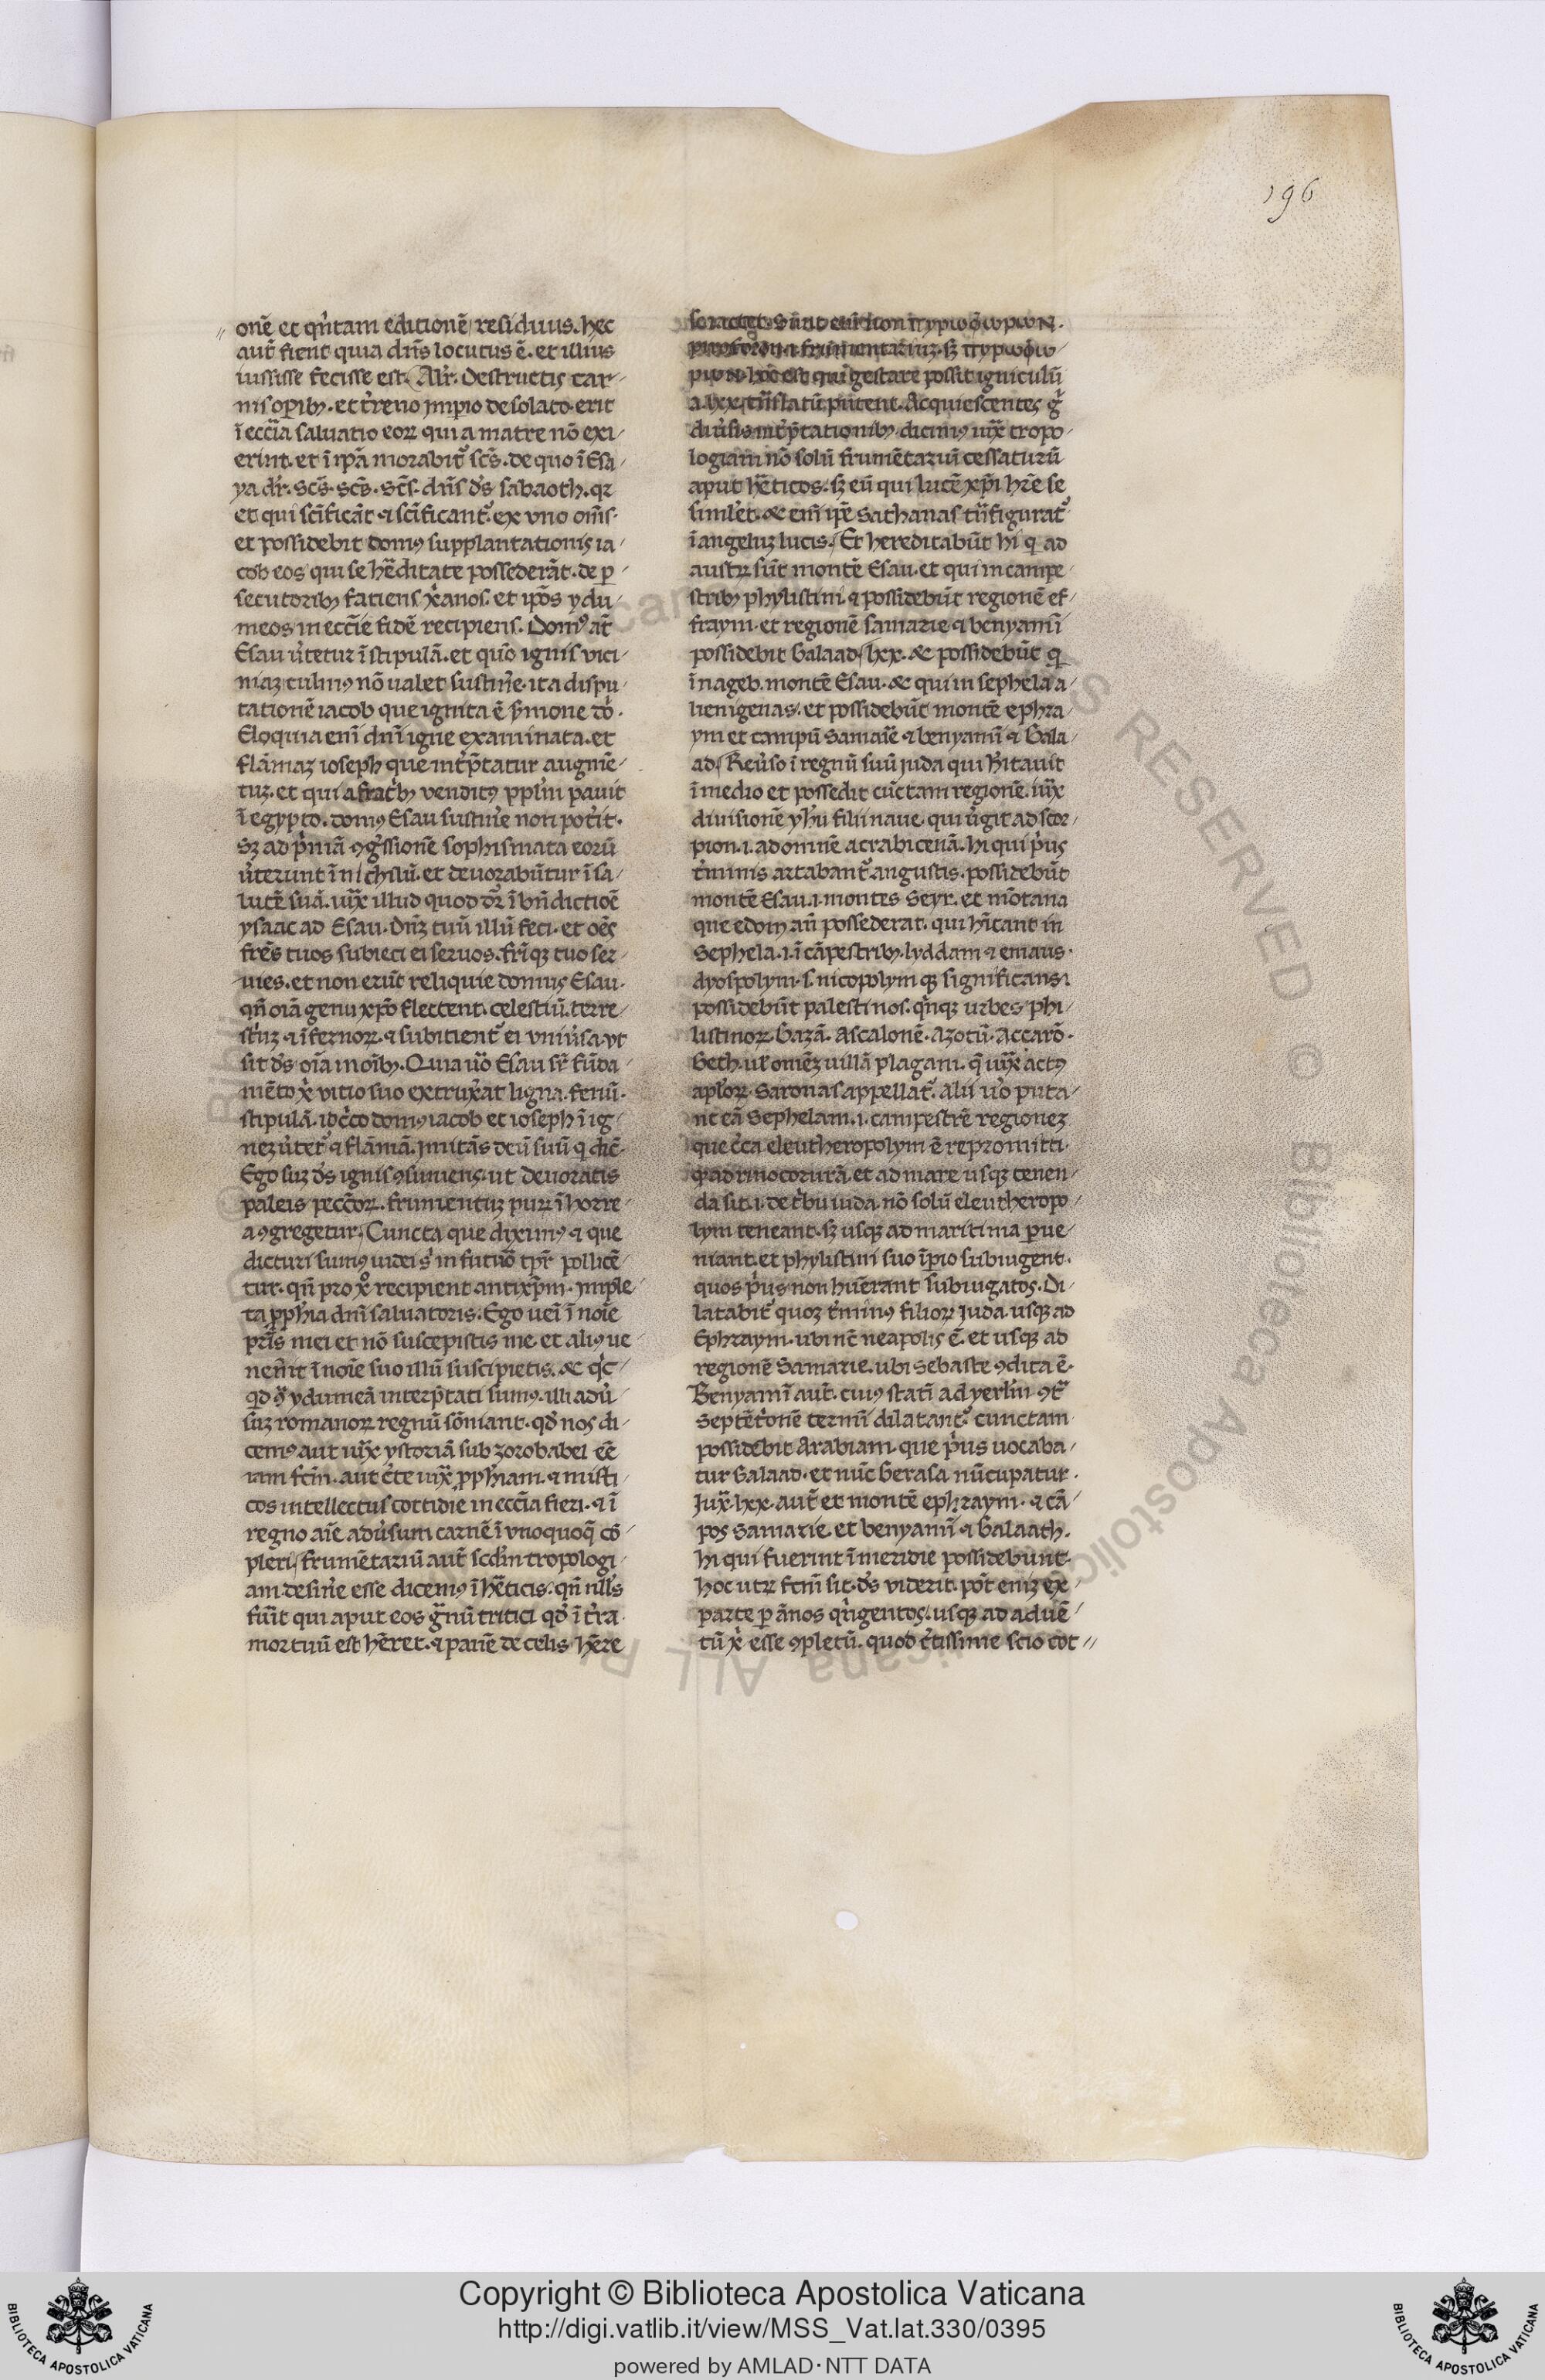 196
onē et qn̄tam editionē residuus. hec
aut̄ fient quia dn̄s locutus ē. et illius
iussisse fecisse est. Alr̄. Destructis car-
nis opibꝫ. et t̄reno jmpio desolato. erit
ī eccl̄ia saluatio eoꝝ qui a matre nō exi-
erint. et ī ip̄a morabit᷑ sc̄s. de quo ī Esa-
ya dr̄. Sc̄s. Sc̄s. Sc̄s. dn̄s ds̄ sabaoth. qꝛ
et qui sc̄ificāt ⁊ sc̄ificant᷑. ex vno om̄s.
et possidebit domꝰ supplantationis ia-
cob eos qui se hēditate possederāt. de p-
secutoribꝫ fatiens xᷓanos. et ip̄os ydu-
meos in eccl̄ie fidē recipiens. Domꝰ at̄
Esau ūtetur ī stipulā. et quō ignis vici-
maꝫ culmꝰ nō ualet sustin̄e. ita dispu-
tationē iacob que ignita ē ẜmone dō.
Eloquia eni dn̄i igne examinata. et
flāmaꝫ ioseph que int̄p̄tatur augmē-
tuꝫ. et qui a frat̄bꝫ venditꝰ pplm̄ pauit
ī egypto. domꝰ Esau sustin̄e non pot̄it.
Sꝫ ad p̄mā ꝯgssionē sophismata eorū
ūterunt ī nichilū. et deuorabūtur ī sa-
lutē suā. iuxͣ illud quod dꝛ̄ ī bn̄dictiōe
ysaac ad Esau. Dn̄ꝫ tuū illū feci. et oēs
frēs tuos subieci ei seruos. frīqꝫ tuo ser-
uies. et non erūt reliquie domus Esau.
qn̄ oīa genu xp̄o flectent. celestiū. terre-
st̄uꝫ ⁊ ī fernoꝝ. ⁊ subitient᷑ ei vniūsa. vt
sit ds̄ oīa in oībꝫ. Quia uō Esau sr̄ fūda-
mētox̄ vitio suo extrux̄at ligna. fenū.
stipulā. idc̄co domꝰ iacob et ioseph ī ig-
neꝫ ūtet᷑ ⁊ flāmā. Jmitās deū suū q dic̄.
Ego suꝫ ds̄ ignis ꝯsumens. ut deuoratis
paleis pecc̄oꝝ. frumentuꝫ puꝝ ī horre-
a ꝯgregetur. Cuncta que diximꝰ ⁊ que
dicturi sumꝰ iudei s in futuō tp̄r pollicē-
tur. qn̄ pro xͦ recipient antixp̄m. jmple-
ta pph̄ia dn̄i saluatoris. Ego uei ī noīe
pr̄is mei et nō suscepistis me. et aliꝰ ue-
nēit ī noīe suo illū suscipietis. ⁊c qc̄-
qd ydumeā interp̄tati sumꝰ. illi adū-
suꝫ romanoꝝ regnū sōniant. qd nos di-
cemꝰ aut iuxͣ ystoriā sub zorobabel ēē
iam fcm̄. aut c̄te iuxͣ pph̄iam. ⁊ misti-
cos intellectus cottidie in eccl̄ia fieri. ⁊ ī
regno aīe adūsum carnē ī vnoquoqꝫ cō-
pleri. frumētariū aut̄ scdm̄ tropologi-
am desin̄e esse dicemꝰ ī hēticis. qn̄ nlls̄
fuīt qui aput eos gͣnū tritici qd ī t̄ra
mortuū est hēret. ⁊ panē de celis hēre
ρων. hoc est qui gestare possit igniculū
a lxx. tn̄slatū putent. Acquiescentes g̊
diūsis int̄p̄tationibꝫ dicimꝰ iuxͣ tropo-
logiam nō solū frumētariū cessaturū
aput hēticos. sꝫ eū qui lucē xp̄i hr̄e se
simlet̄. ⁊c enī ip̄e Sathanas tn̄sfigurat᷑
ī angeluꝫ lucis. Et hereditabūt hi q ad
austꝝ sūt montē Esau. et qui in campe-
stribꝫ phylistini. ⁊ possidebūt regionē ef-
fraym. et regionē samarie ⁊ benyamī
possidebit Galaad. lxx. ⁊c possidebūt q
ī nageb. montē Esau. ⁊c qui in sephela a-
lienigenas. et possidebūt montē ephra-
ym et campū Samarie ⁊ benyamī ⁊ Gala-
ad. Reūso ī regnū suū juda qui h̄itauit
ī medio et possedit cūctam regionē. iuxͣ
diuisionē yh̄u filii naue. qui ūgit ad scor-
pion. i. ad omnē acrabicenā. hi qui p̄us
t̄minis artabant᷑ angustis. possidebūt
montē Esau. i. montes Seyr. et mōtana
que edom an̄ possederat. qui h̄itant in
Sephela. i. ī cāpestribꝫ. lyddam ⁊ emaus.
dyospolym. s. nicopolym qꝫ significans.
possidebūt palestinos. qn̄qꝫ urbes phi-
listinoꝝ. Gazā. Ascalonē. Azotū. Accarō.
Geth. ul̄ omēꝫ uillā plagam. q iuxͣ actꝰ
aplōꝝ. Saronas appellat᷑. Alii uō puta-
nt eā Sephelam. i. campestrē regioneꝫ
que c̄ca eleutheropolym ē repromitti.
qad rinocorurā. et ad mare usqꝫ tenen-
da sit. i. de t̄bu iuda. nō solū eleutheropo-
lym teneant. sꝫ usqꝫ ad maritima pue-
niant. et phylistini suo īpio subiugent.
quos p̄us non huērant subiugatos. Di-
latabit᷑ quoꝫ t̄minꝰ filioꝝ Juda. usqꝫ ad
Ephraym. ubi nc̄ neapolis ē. et usqꝫ ad
regionē Samarie. ubi Sebaste ꝯdita ē.
Benyamī aut̄. cuiꝰ statī ad yerlm̄ ꝯtͣ
Septēt̄onē termī dilatant᷑. cunctam
possidebit Arabiam. que p̄us uocaba-
tur Galaad. et nūc Gerasa nūcupatur.
Juxͣ. lxx. aut̄ et montē ephraym. ⁊ cā-
pos Samarie. et benyamī ⁊ Galaath.
hi qui fuerint ī meridie possidebunt.
hoc utꝝ fcm̄ sit. ds̄ viderit. pōt eniꝫ ex
parte p ānos qn̄gentos. usqꝫ ad aduē-
tū xͥ esse ꝯpletū. quod c̄tissime scio tot
Copyright © Biblioteca Apostolica Vaticana
http://digi.vatlib.it/view/MSS_Vat.lat.330/0395
powered by AMLAD·NTT DATA
BIBLIOTECA APOSTOLICA VATICANA
BIBLIOTECA APOSTOLICA VATICANA